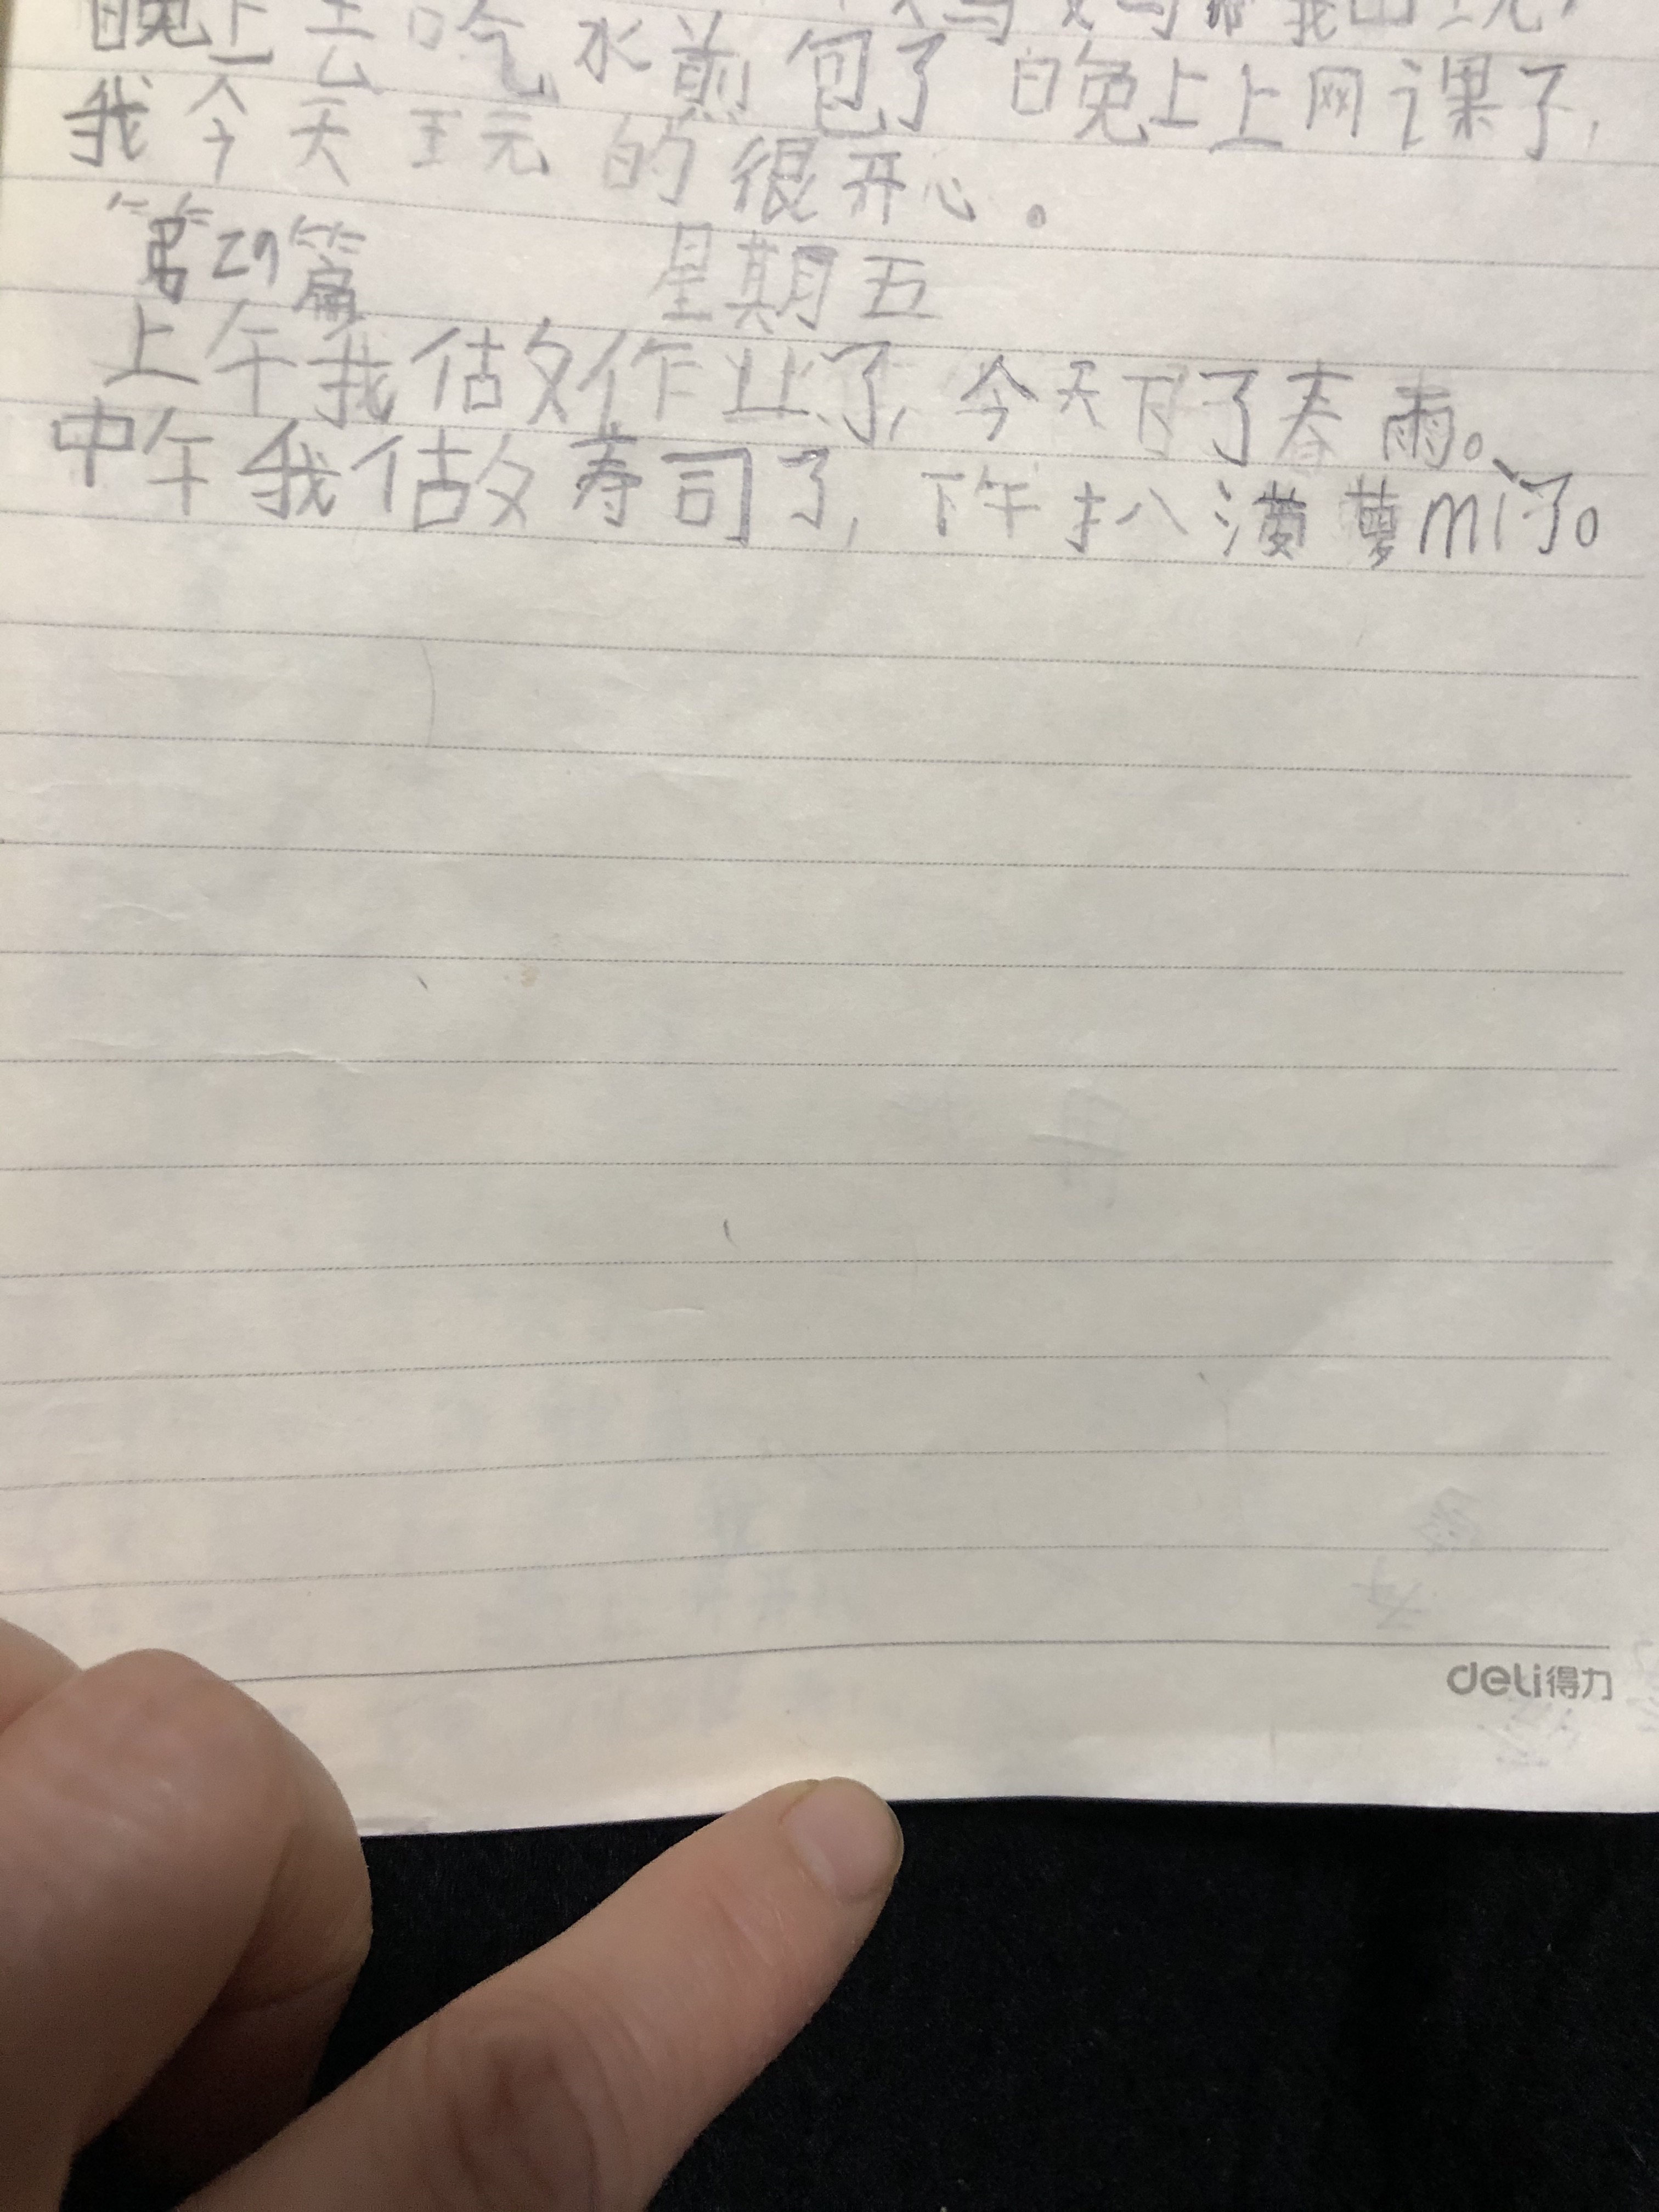 妈妈带我出去玩，
晚上去吃水煎包了晚上上网课了，
我今天玩的很开心。
第29篇 星期五
上午我做作业了，今天下了春雨。
中午我做寿司了，下午扒菠萝mì了。
deli得力